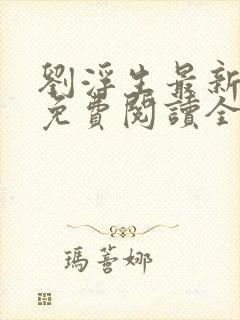 劉浮生最新
免費閱讀全
瑪薔娜